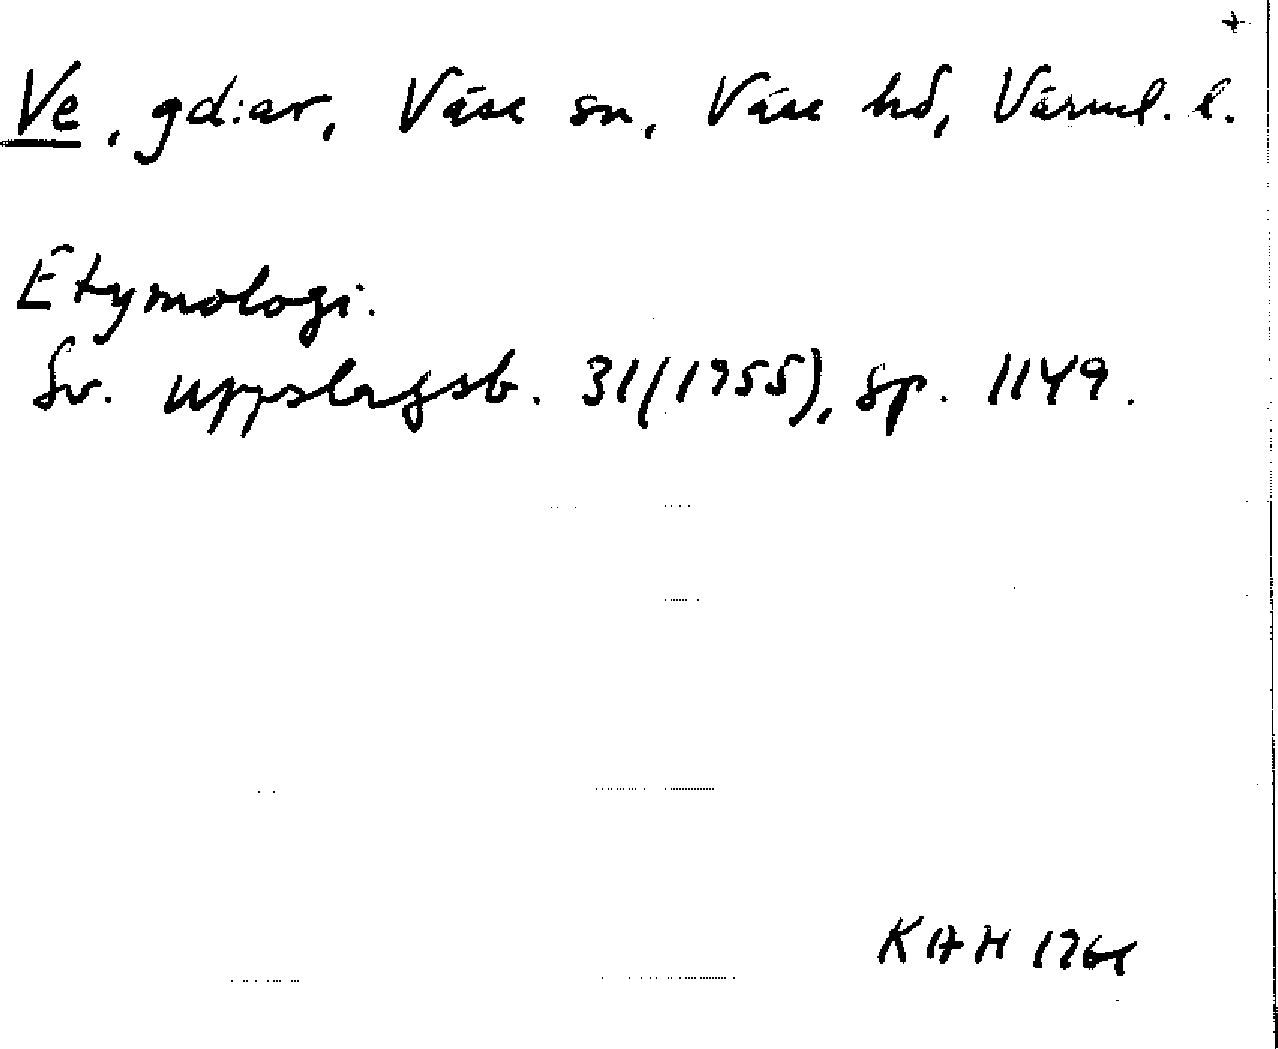 +
Ve, gd:ar, Väse sn, Väse hd, Värml. l.
Etymologi.
Sv. uppslagsb. 31(1955), sp. 1149.
KAH